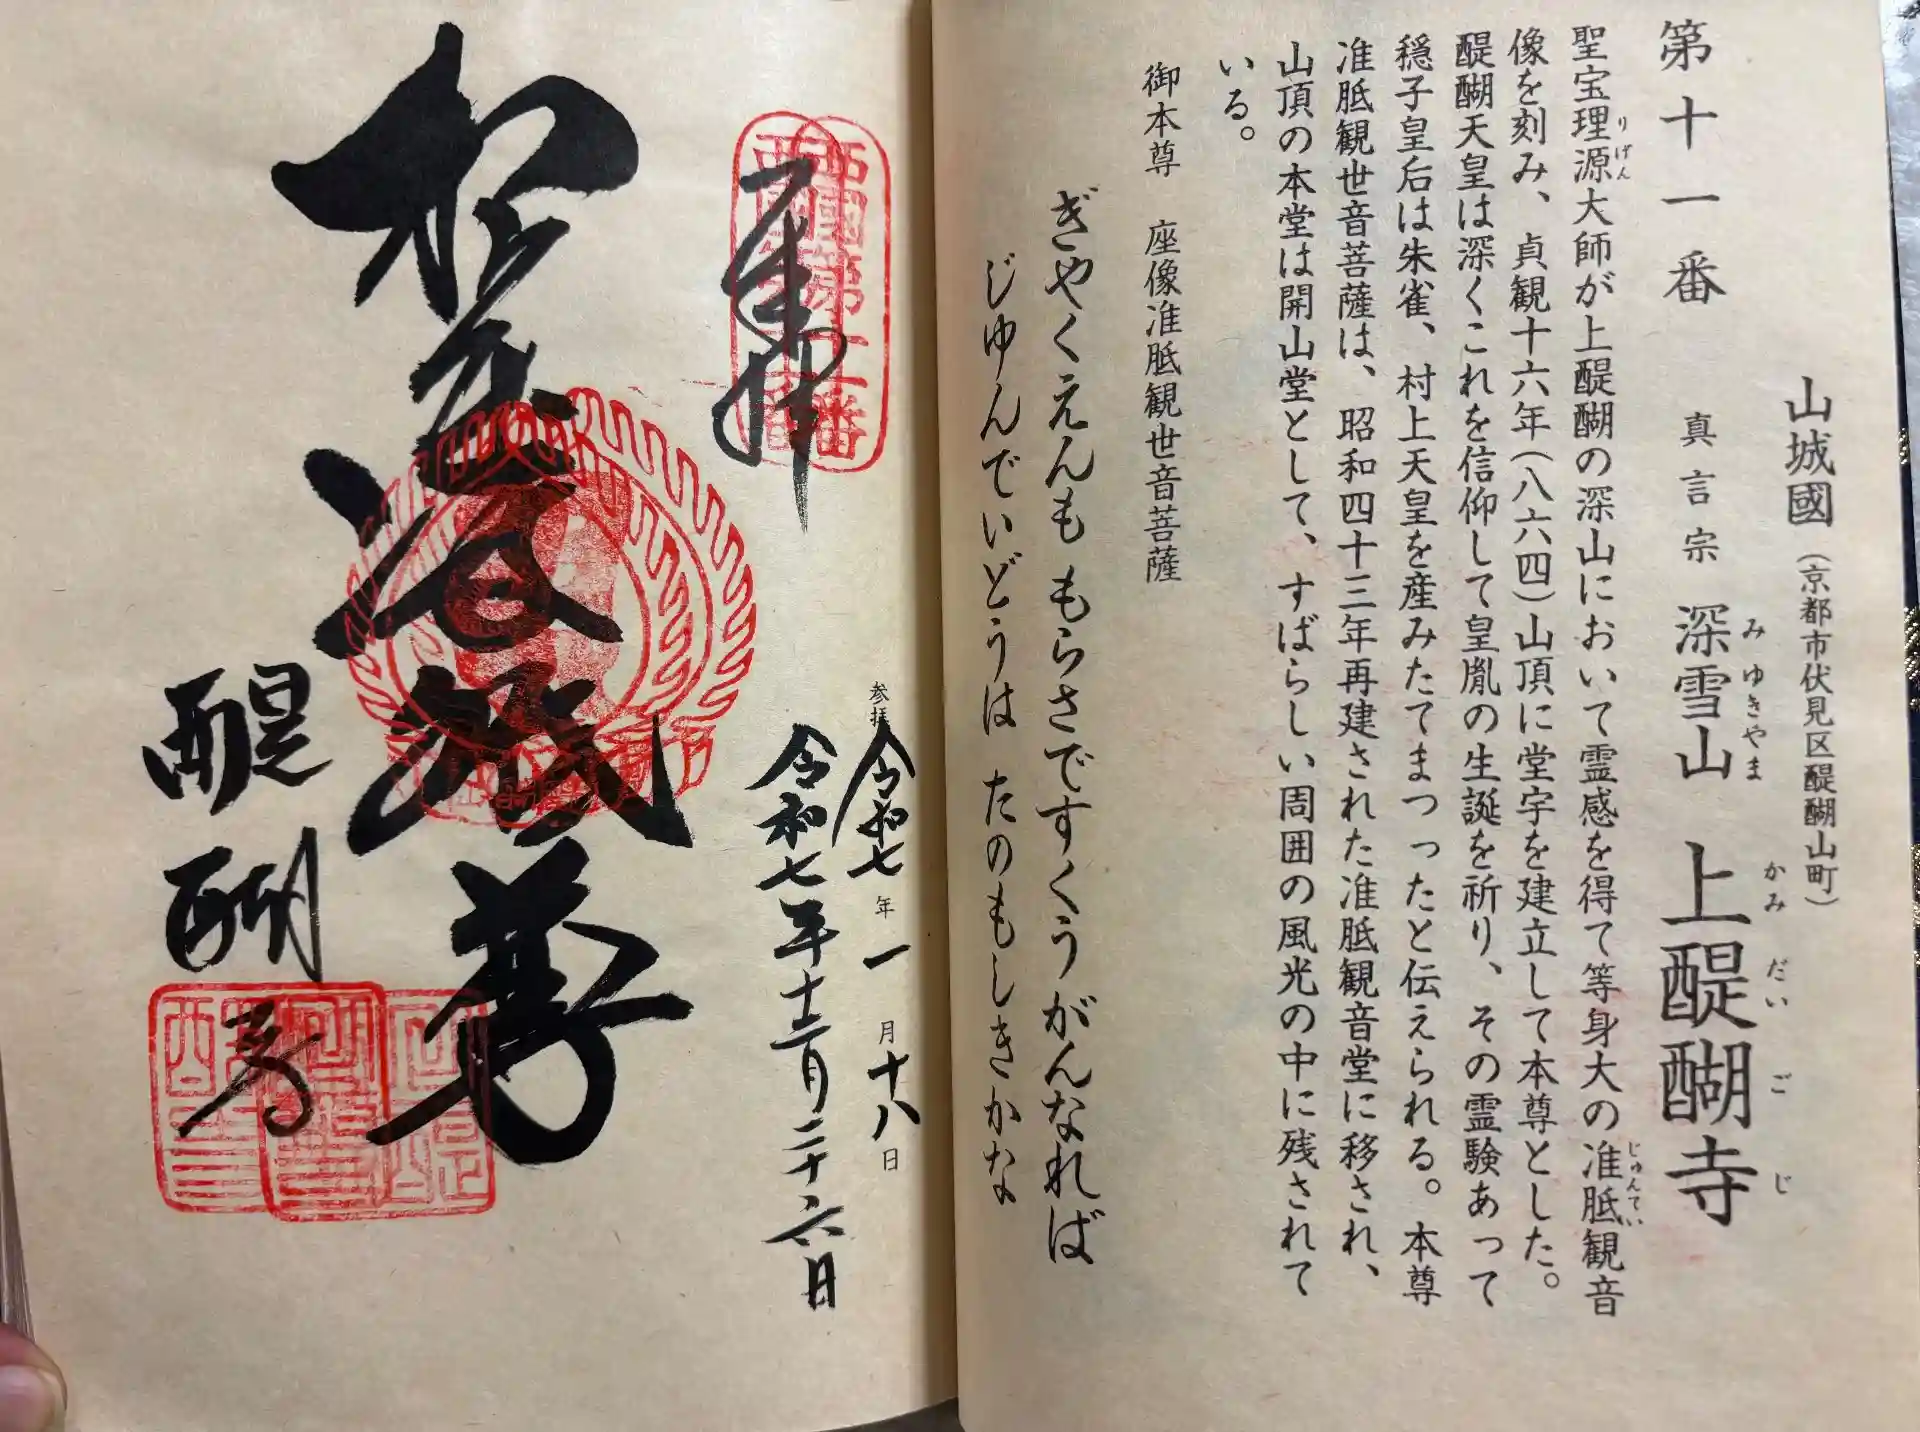 山城國（京都市伏見区醍醐山町）
第十一番　真言宗　深雪山　上醍醐寺
みゆきやま　かみだいごじ
聖宝理源大師が上醍醐の深山において霊感を得て等身大の准胝観音
りげん　じゅんてい
像を刻み、貞観十六年（八六四）山頂に堂宇を建立して本尊とした。
醍醐天皇は深くこれを信仰して皇胤の生誕を祈り、その霊験あって
穏子皇后は朱雀、村上天皇を産みたてまつったと伝えられる。本尊
准胝観世音菩薩は、昭和四十三年再建された准胝観音堂に移され、
山頂の本堂は開山堂として、すばらしい周囲の風光の中に残されて
いる。
御本尊　座像准胝観世音菩薩
ぎやくえんも もらさですくうがんなれば
じゆんでいどうは たのもしきかな
参拝 令和七年一月十八日
令和七年十二月二十六日
奉拝
西國第十一番
醍醐寺